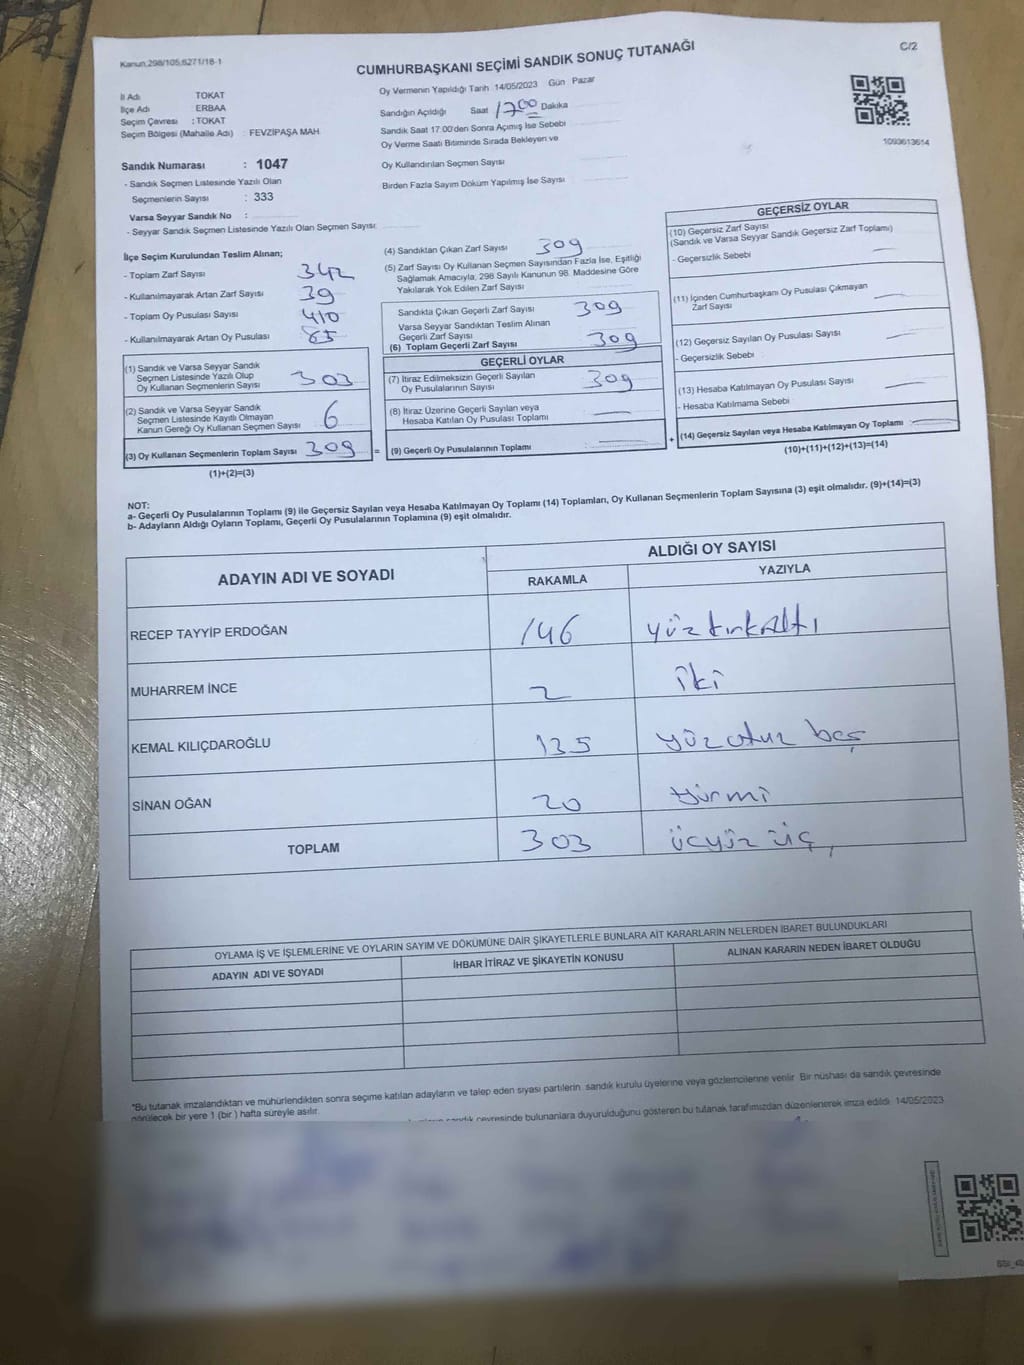 Kanun,298/105,6271/18-1
C/2
CUMHURBAŞKANI SEÇİMİ SANDIK SONUÇ TUTANAĞI
İl Adı TOKAT
İlçe Adı : ERBAA
Seçim Çevresi : TOKAT
Seçim Bölgesi (Mahalle Adı) : FEVZİPAŞA MAH
Sandık Numarası : 1047
- Sandık Seçmen Listesinde Yazılı Olan
Seçmenlerin Sayısı : 333
Varsa Seyyar Sandık No :
- Seyyar Sandık Seçmen Listesinde Yazılı Olan Seçmen Sayısı
Oy Vermenin Yapıldığı Tarih :14/05/2023 Gün : Pazar
Sandığın Açıldığı Saat 17:00 Dakika
Sandık Saat 17.00'den Sonra Açımış İse Sebebi
Oy Verme Saati Bitiminde Sırada Bekleyen ve
Oy Kullandırılan Seçmen Sayısı
Birden Fazla Sayım Döküm Yapılmış İse Sayısı
1093613614
İlçe Seçim Kurulundan Teslim Alınan;
- Toplam Zarf Sayısı 342
- Kullanılmayarak Artan Zarf Sayısı 39
- Toplam Oy Pusulası Sayısı 410
- Kullanılmayarak Artan Oy Pusulası
(1) Sandık ve Varsa Seyyar Sandık
Seçmen Listesinde Yazılı Olup
Oy Kullanan Seçmenlerin Sayısı 303
(2) Sandık ve Varsa Seyyar Sandık
Seçmen Listesinde Kayıtlı Olmayan
Kanun Gereği Oy Kullanan Seçmen Sayısı 6
(3) Oy Kullanan Seçmenlerin Toplam Sayısı 309 =
(1)+(2)=(3)
(4) Sandıktan Çıkan Zarf Sayısı 309
(5) Zarf Sayısı Oy Kullanan Seçmen Sayısından Fazla İse, Eşitliği
Sağlamak Amacıyla, 298 Sayılı Kanunun 98. Maddesine Göre
Yakılarak Yok Edilen Zarf Sayısı
Sandıkta Çıkan Geçerli Zarf Sayısı 309
Varsa Seyyar Sandıktan Teslim Alınan
Geçerli Zarf Sayısı
(6) Toplam Geçerli Zarf Sayısı 309
GEÇERLİ OYLAR
(7) İtiraz Edilmeksizin Geçerli Sayılan
Oy Pusulalarının Sayısı 309
(8) İtiraz Üzerine Geçerli Sayılan veya
Hesaba Katılan Oy Pusulası Toplamı —
(9) Geçerli Oy Pusulalarının Toplamı —
+
GEÇERSİZ OYLAR
(10) Geçersiz Zarf Sayısı
(Sandık ve Varsa Seyyar Sandık Geçersiz Zarf Toplamı)
- Geçersizlik Sebebi —
(11) İçinden Cumhurbaşkanı Oy Pusulası Çıkmayan
Zarf Sayısı —
(12) Geçersiz Sayılan Oy Pusulası Sayısı —
- Geçersizlik Sebebi
(13) Hesaba Katılmayan Oy Pusulası Sayısı —
- Hesaba Katılmama Sebebi
(14) Geçersiz Sayılan veya Hesaba Katılmayan Oy Toplamı —
(10)+(11)+(12)+(13)=(14)
NOT:
a- Geçerli Oy Pusulalarının Toplamı (9) ile Geçersiz Sayılan veya Hesaba Katılmayan Oy Toplamı (14) Toplamları, Oy Kullanan Seçmenlerin Toplam Sayısına (3) eşit olmalıdır. (9)+(14)=(3)
b- Adayların Aldığı Oyların Toplamı, Geçerli Oy Pusulalarının Toplamına (9) eşit olmalıdır.
ADAYIN ADI VE SOYADI
ALDIĞI OY SAYISI
RAKAMLA YAZIYLA
RECEP TAYYİP ERDOĞAN 146 yüzkırkaltı
MUHARREM İNCE 2 iki
KEMAL KILIÇDAROĞLU 135 yüzotuz beş
SİNAN OĞAN 20 yirmi
TOPLAM 303 üçyüz üç
OYLAMA İŞ VE İŞLEMLERİNE VE OYLARIN SAYIM VE DÖKÜMÜNE DAİR ŞİKAYETLERLE BUNLARA AİT KARARLARIN NELERDEN İBARET BULUNDUKLARI
ADAYIN ADI VE SOYADI İHBAR İTİRAZ VE ŞİKAYETİN KONUSU ALINAN KARARIN NEDEN İBARET OLDUĞU
*Bu tutanak imzalandıktan ve mühürlendikten sonra seçime katılan adayların ve talep eden siyasi partilerin sandık kurulu üyelerine veya gözlemcilerine verilir. Bir nüshası da sandık çevresinde
görülecek bir yere 1 (bir ) hafta süreyle asılır.
sandık çevresinde bulunanlara duyurulduğunu gösteren bu tutanak tarafımızdan düzenlenerek imza edildi. 14/05/2023